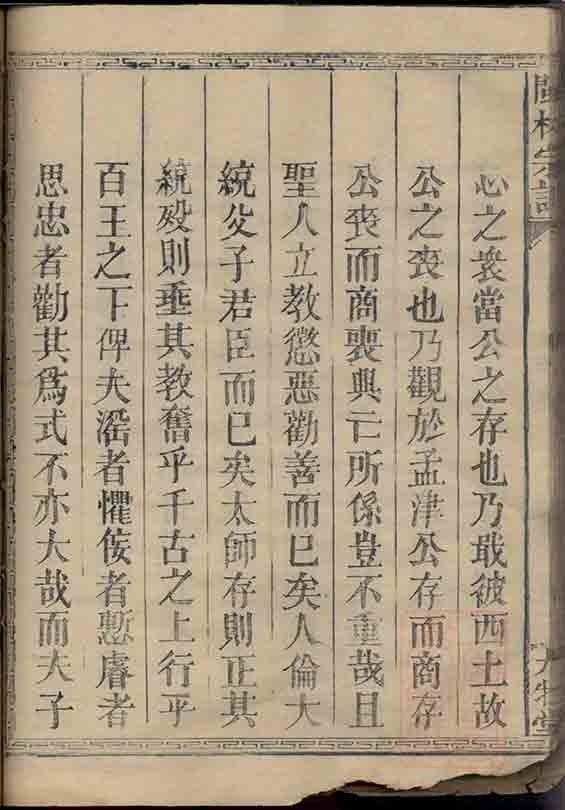 閩林宗譜
心之衆當公之存也乃戢彼西土故
公之喪也乃觀於孟津公存而商存
公喪而商喪興亡所係豈不重哉且
聖人立教懲惡勸善而已矣人倫大
統父子君臣而已矣太師存則正其
統歿則垂其教奮乎千古之上行乎
百王之下俾夫滛者懼佞者慙睿者
思忠者勸其爲式不亦大哉而夫子
牧堂